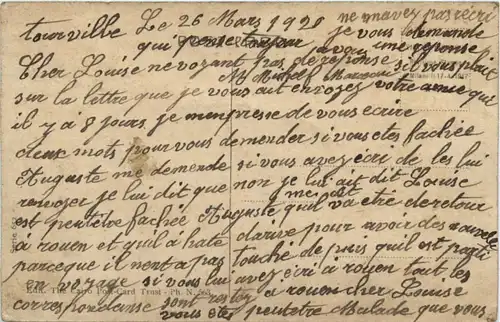 tourville Le 26 Mars 1920
ne mavez pas écri
je vous demande
qui pense toujour
a vous une reponse
Cher Louise ne voyant pas de reponse sil vous plait
sur la lettre que je vous ait envoyez votre amie qui
il y a 8 jours je mempresse de vous ecrire
deux mots pour vous demender si vous etes fachée
Auguste me demende si vous avez écri de les lui
renvoyer je lui dit que non je lui ait dit Louise
est peutètre fachée Auguste
quil va etre de retour
a rouen et quil a hate davoir pour avoir des nouvelle
parceque il nent a pas touché depuis quil est parti
en voyage si vous lui avez écri a rouen tout les
correspondanse sont restez a rouen cher Louise
vous etes peutetre Malade que vous